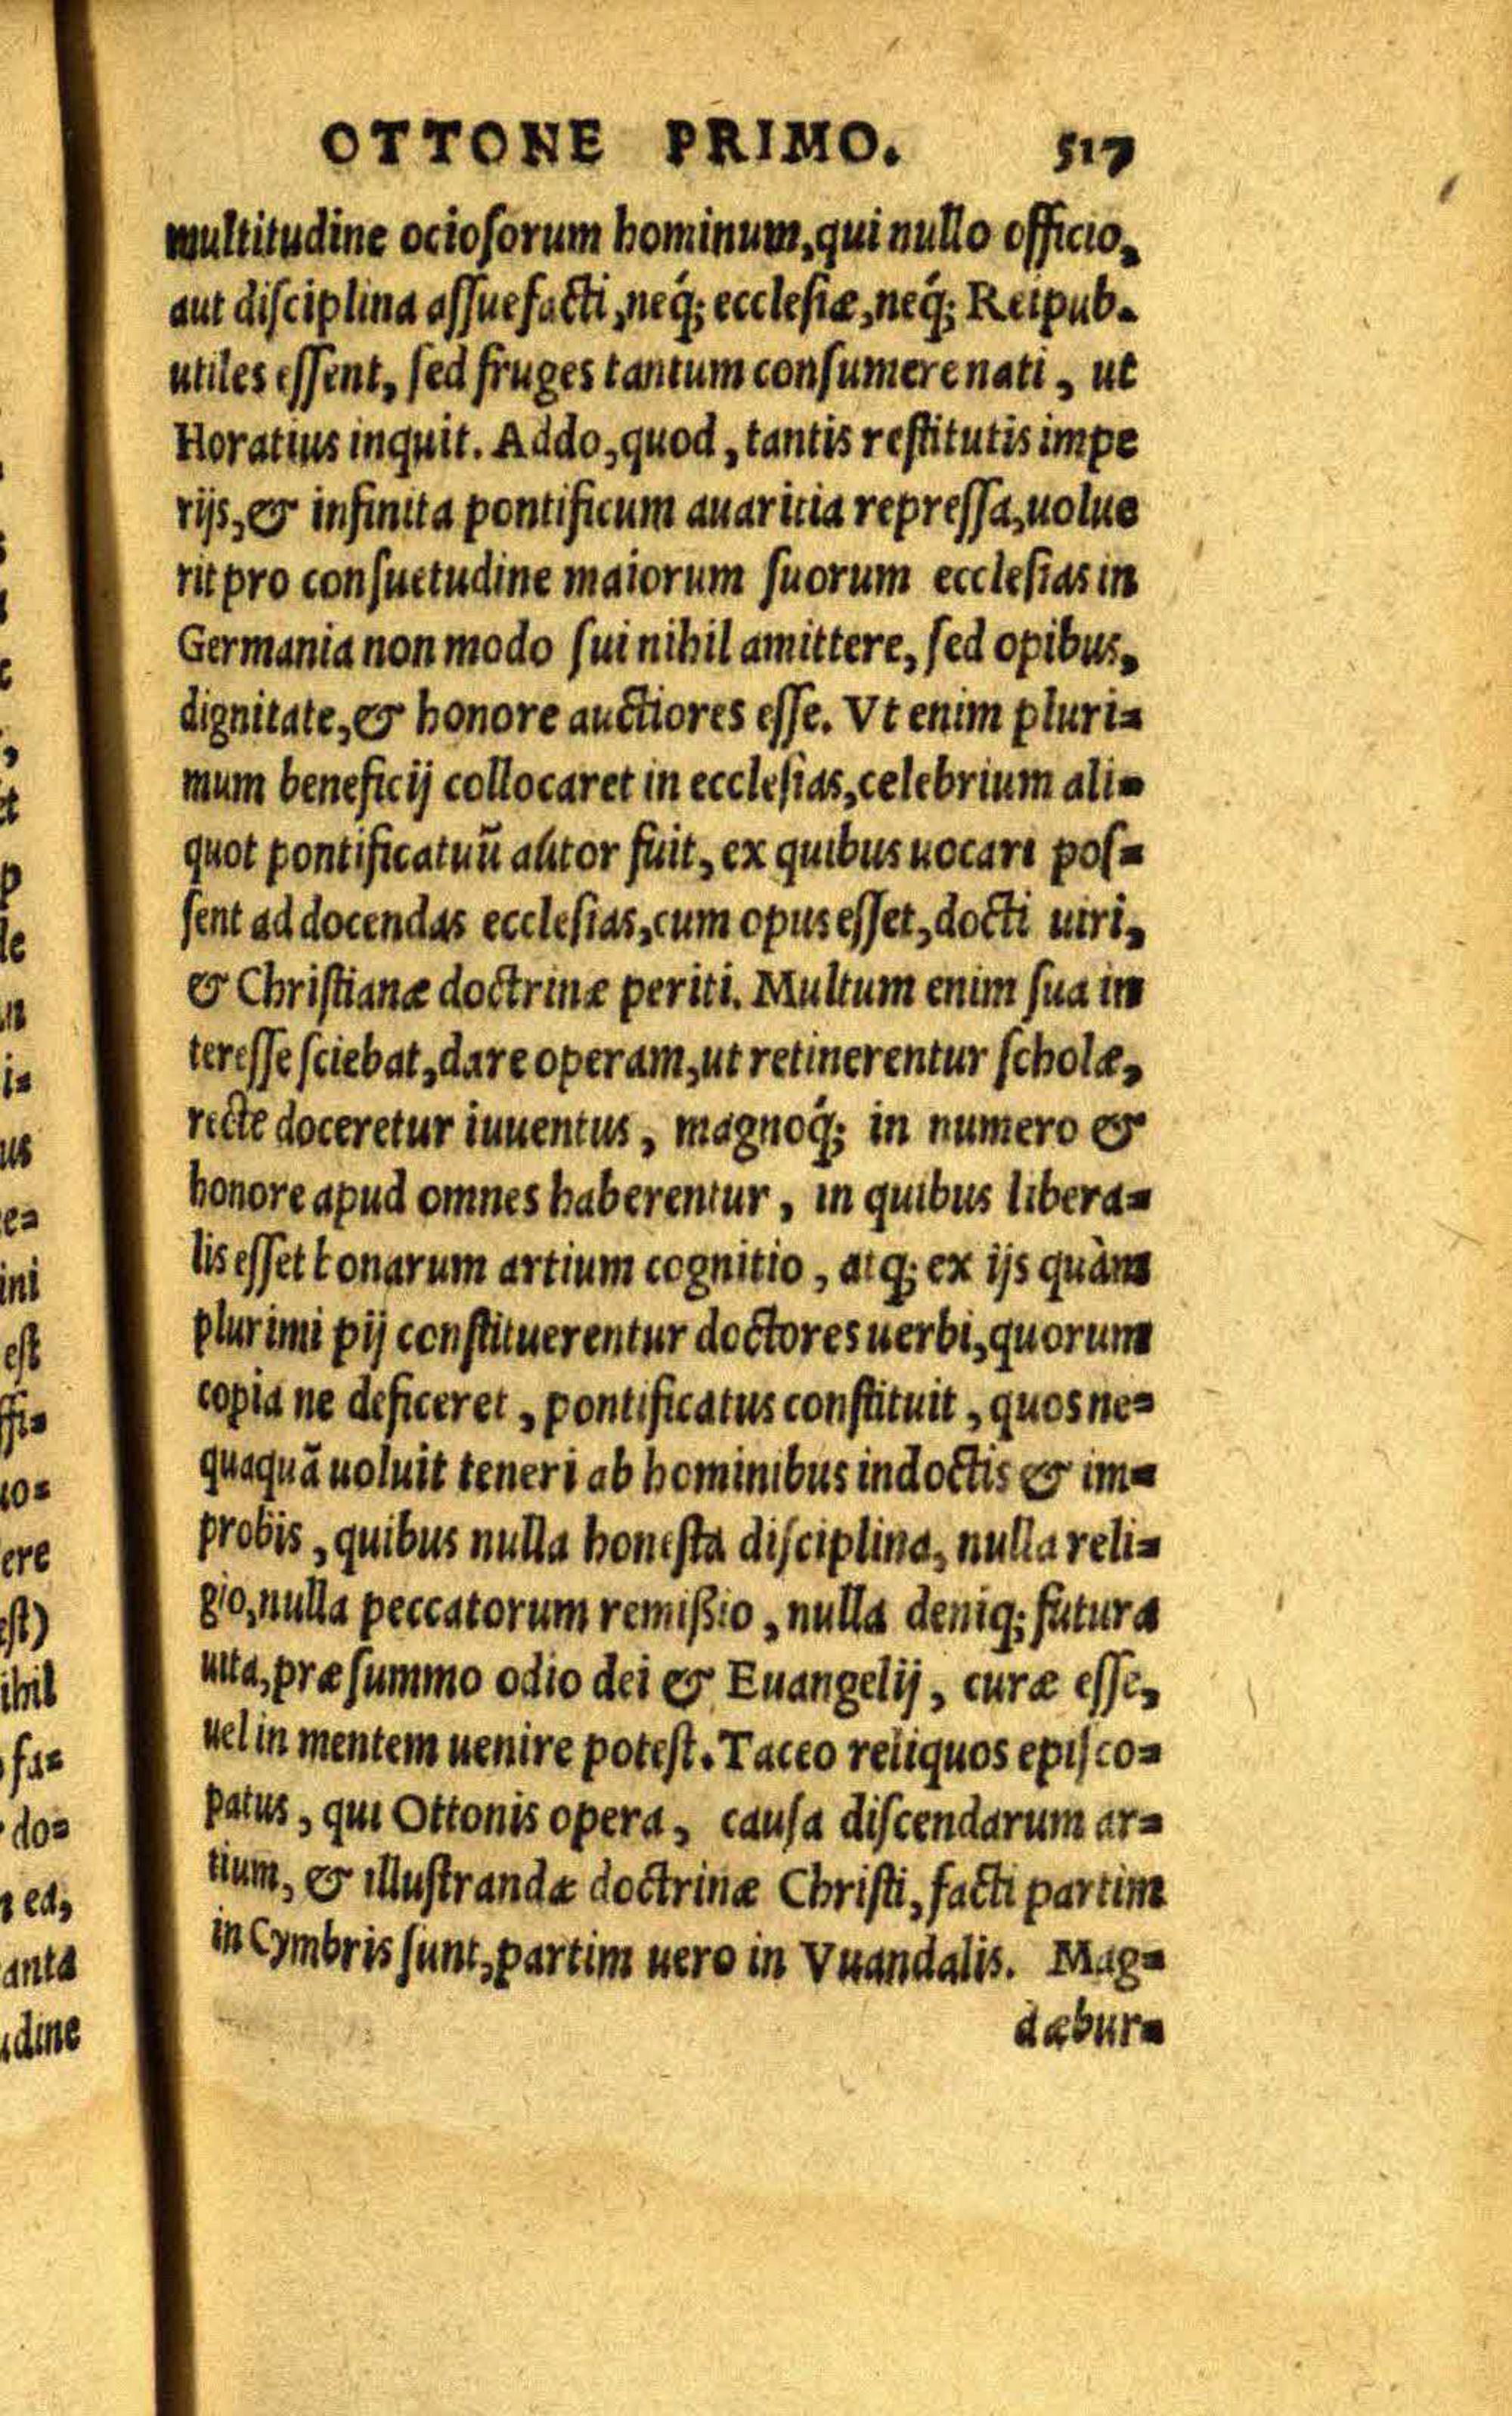 OTTONE PRIMO. 517
multitudine ociosorum hominum, qui nullo officio,
aut disciplina assuefacti, neq́; ecclesiæ, neq́; Reipub.
utiles essent, sed fruges tantum consumere nati, ut
Horatius inquit. Addo, quod, tantis restitutis impe
rijs, & infinita pontificum auaritia repressa, uolue
rit pro consuetudine maiorum suorum ecclesias in
Germania non modo sui nihil amittere, sed opibus,
dignitate, & honore auctiores esse. Vt enim pluri=
mum beneficij collocaret in ecclesias, celebrium ali=
quot pontificatuũ autor fuit, ex quibus uocari pos=
sent ad docendas ecclesias, cum opus esset, docti uiri,
& Christianæ doctrinæ periti. Multum enim sua in
teresse sciebat, dare operam, ut retinerentur scholæ,
recte doceretur iuuentus, magnoq́; in numero &
honore apud omnes haberentur, in quibus libera=
lis esset bonarum artium cognitio, atq; ex ijs quàm
plurimi pij constituerentur doctores uerbi, quorum
copia ne deficeret, pontificatus constituit, quos ne=
quaquã uoluit teneri ab hominibus indoctis & im=
probis, quibus nulla honesta disciplina, nulla reli=
gio, nulla peccatorum remißio, nulla deniq; futura
uita, præ summo odio dei & Euangelij, curæ esse,
uel in mentem uenire potest. Taceo reliquos episco=
patus, qui Ottonis opera, causa discendarum ar=
tium, & illustrandæ doctrinæ Christi, facti partim
in Cymbris sunt, partim uero in Vuandalis. Mag=
dæbur=